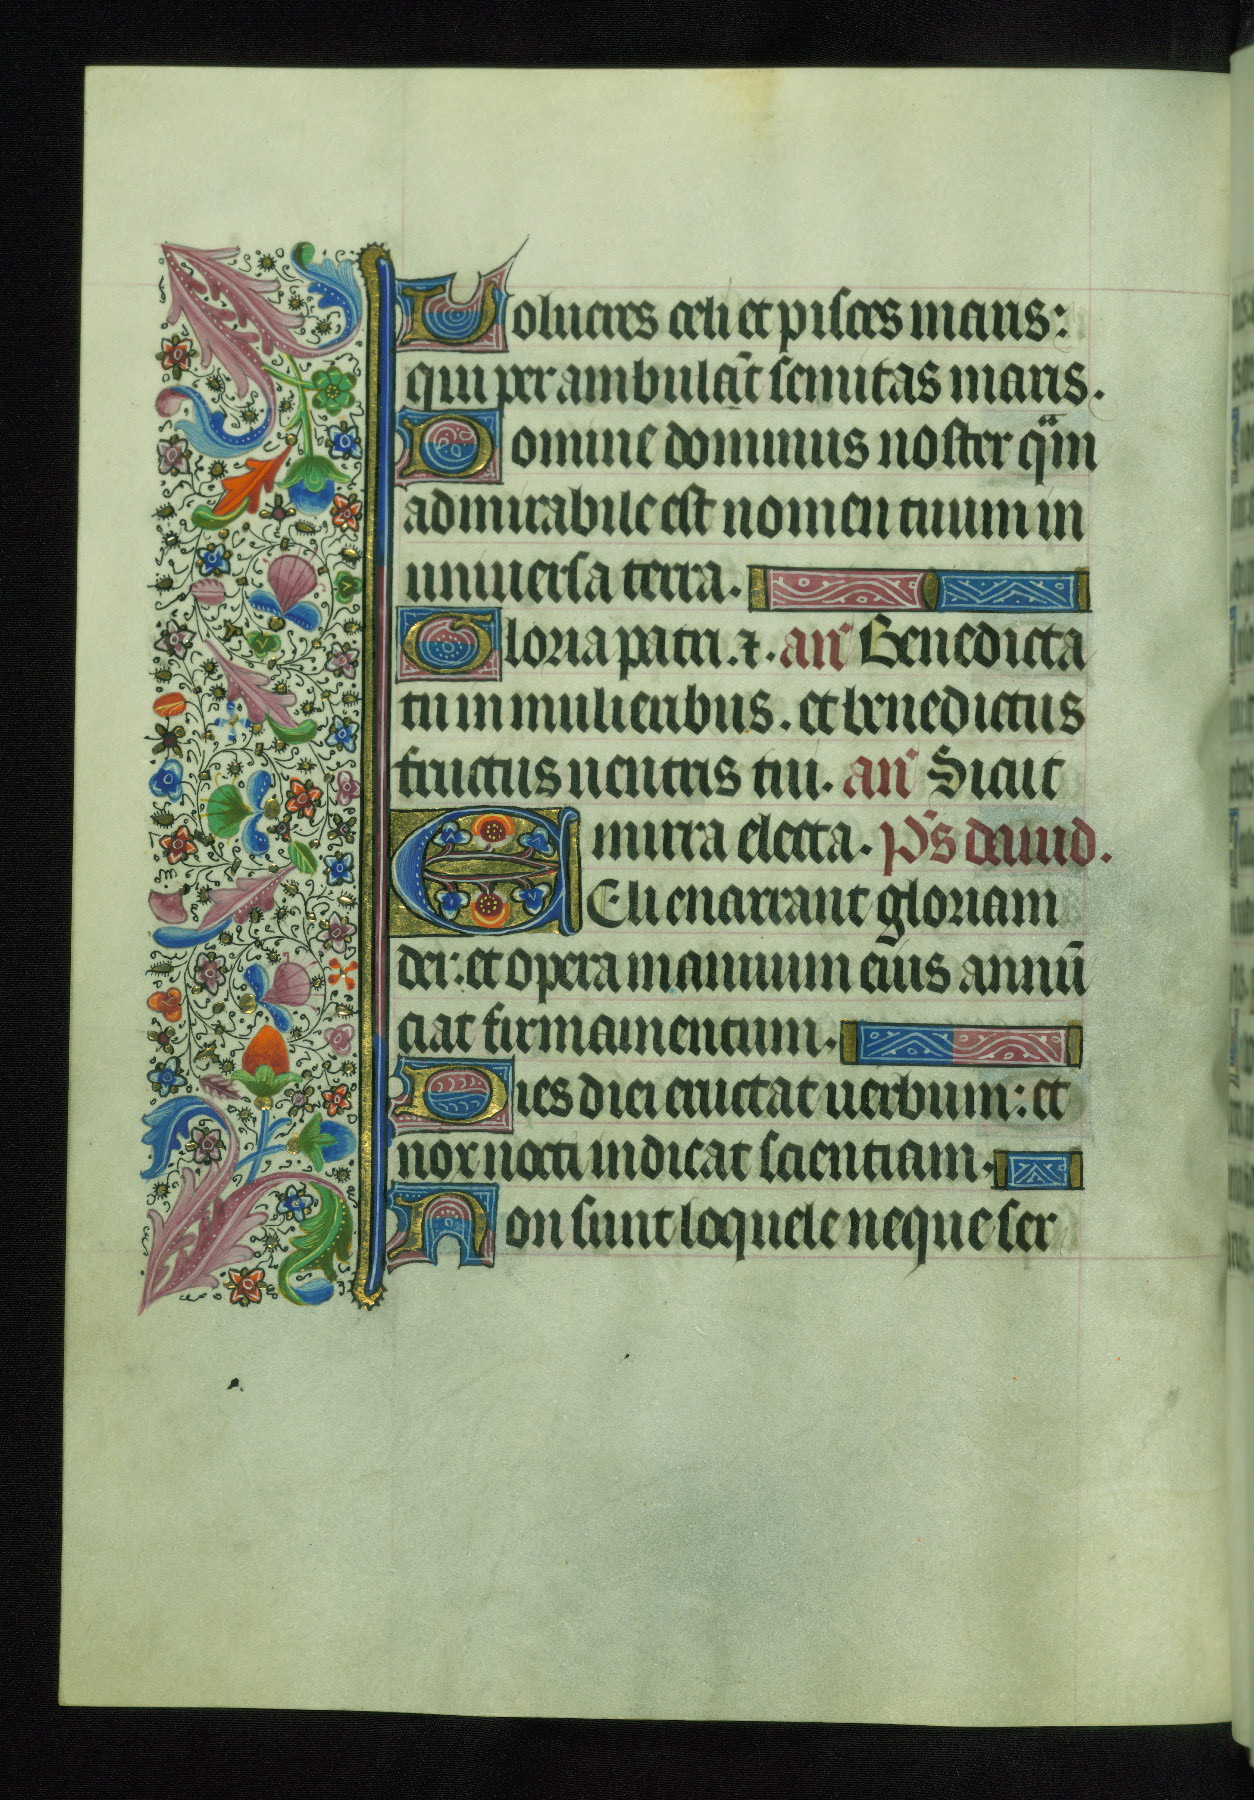 Uolucres celi et pisces maris:
qui perambulāt semitas maris.
Domine dominus noster qm̄
admirabile est nomen tuum in
uniuersa terra.
Gloria patri. ⁊. añ Benedicta
tu in mulieribus. et benedictus
fructus uentris tui. añ Sicut
mirra electa. p̄s dauid.
CEli enarrant gloriam
dei: et opera manuum eius annū
ciat firmamentum.
Dies diei eructat uerbum: et
nox nocti indicat scientiam.
Non sunt loquele neque ser